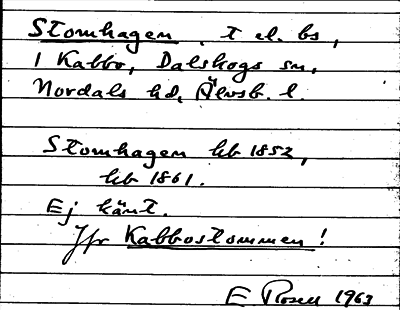 Stomhagen, t el. bs,
i Kabbo, Dalskogs sn,
Nordals hd, Älvsb. l.
Stomhagen hb 1852,
hb 1861.
Ej känt.
Jfr Kabbostommen!
E Rosell 1963